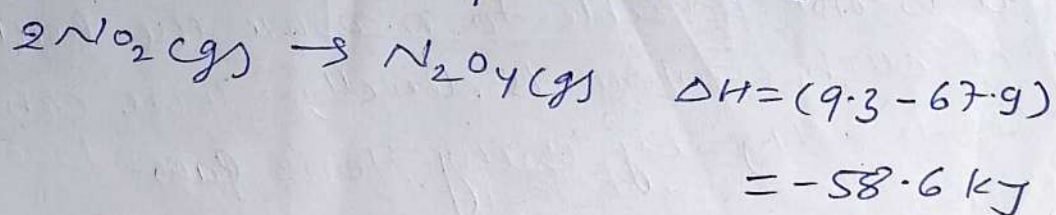 2NO₂(g) → N₂O₄(g) ΔH=(9.3-67.9)
=-58.6 kJ